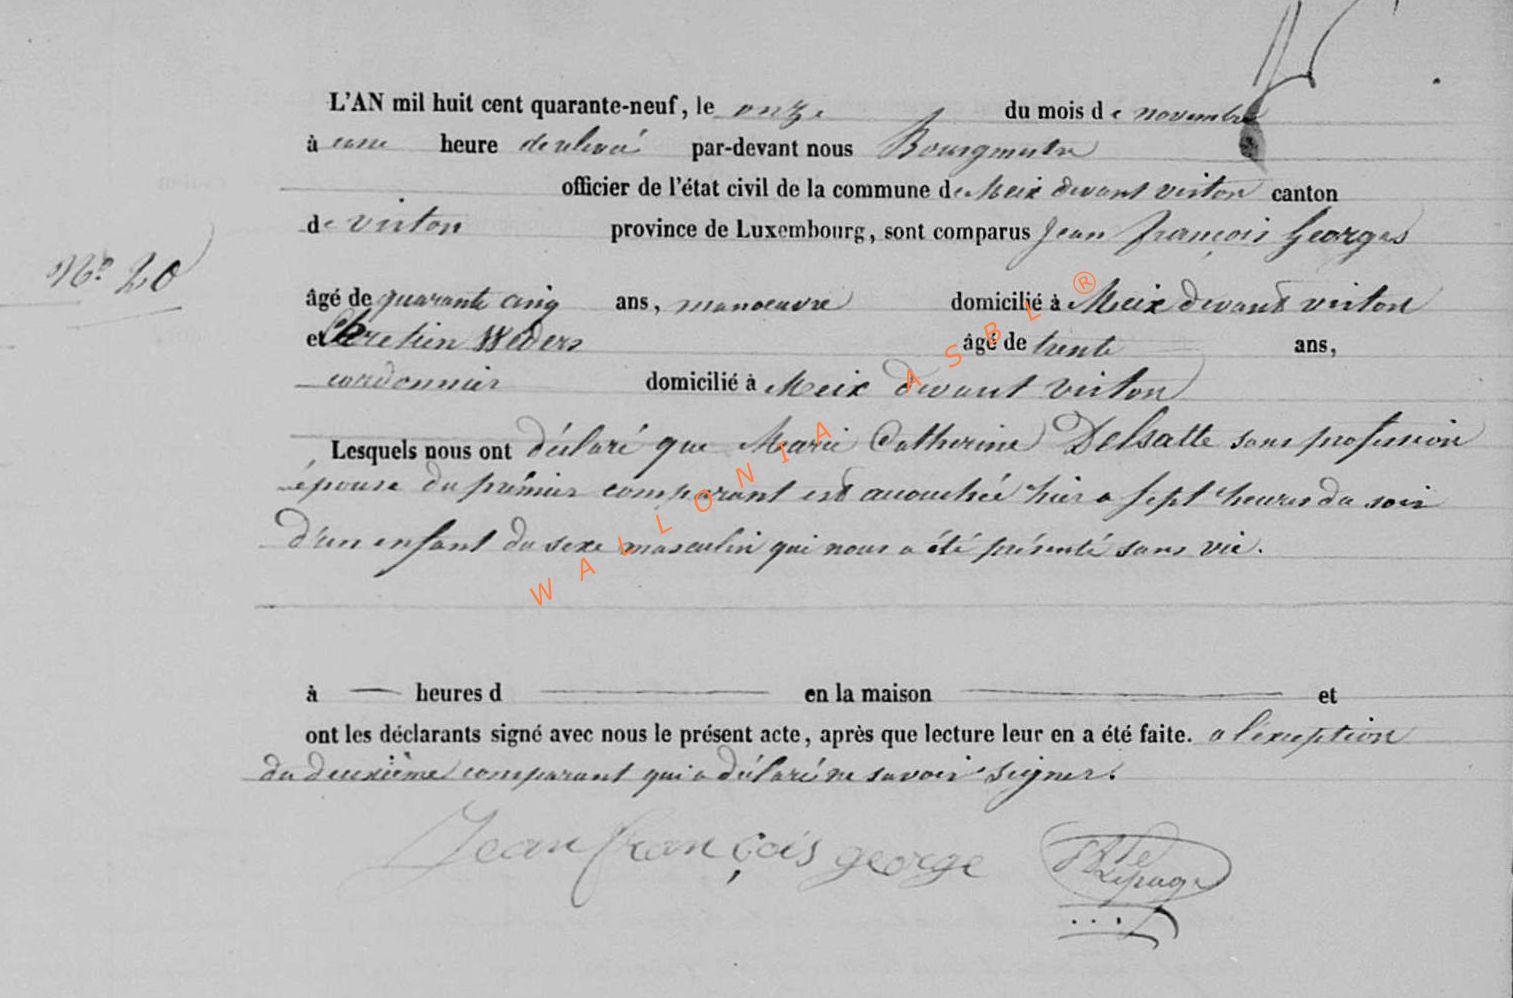 L'AN mil huit cent quarante-neuf, le onze du mois de novembre
à une heure de relevé par-devant nous Bourgmestre
officier de l'état civil de la commune de Meix devant virton canton
de virton province de Luxembourg, sont comparus Jean françois Georges
N° 20
âgé de quarante cinq ans, manoeuvre domicilié à Meix devant virton
et Chretien Weders âgé de trente ans,
cordonnier domicilié à Meix devant virton
Lesquels nous ont déclaré que Marie Catherine Delsatte sans profession
épouse du prémier comparant est accouchée hier a sept heures du soir
d'un enfant du sexe masculin qui nous a été présenté sans vie.
à — heures d — en la maison — et
ont les déclarants signé avec nous le présent acte, après que lecture leur en a été faite. a l'exception
du deuxième comparant qui a déclaré ne savoir signer.
Jean françois george
Lepage
WALLONIA ASBL ®